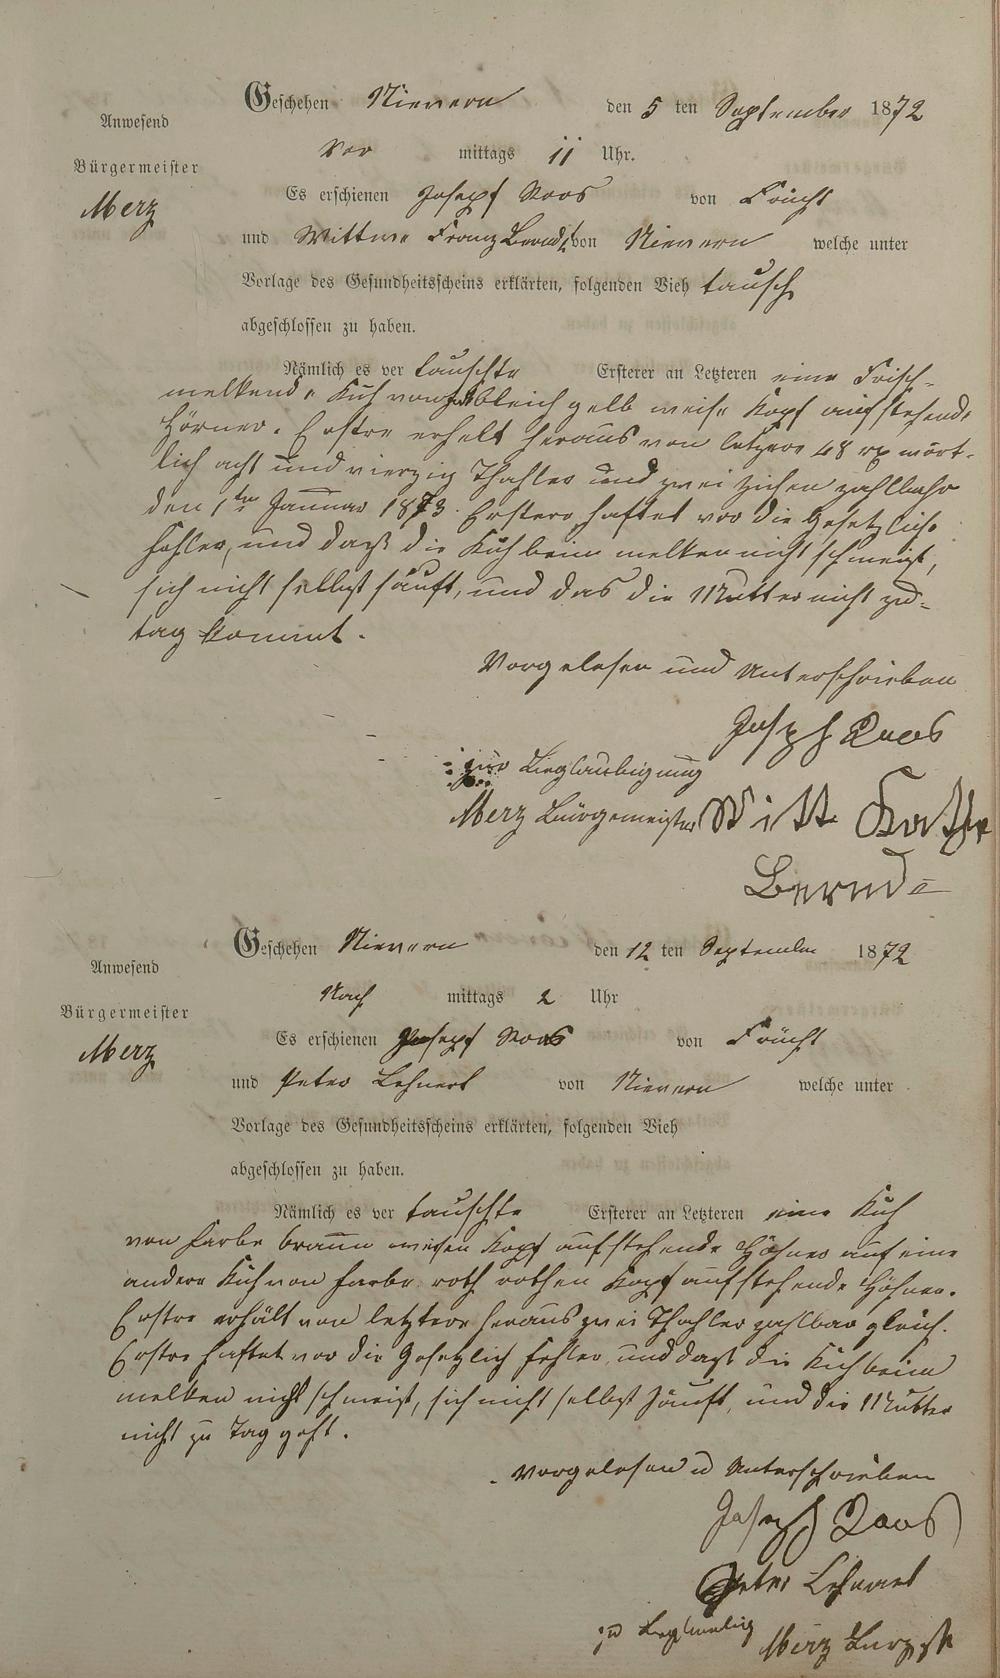 Geschehen Nievern den 5 ten September 1872
Anwesend
Bürgermeister
Merz
Vor mittags 11 Uhr.
Es erschienen Joseph Roos von Frücht
und Wittwe Franz Berndt von Nievern welche unter
Vorlage des Gesundheitsscheins erklärten, folgenden Vieh tausch
abgeschlossen zu haben.
Nämlich es ver tauschte Ersterer an Letzteren eine Frisch-
melkende Kuh von bleich gelb weise Kopf aufstehende
Hörner. Erstre erhelt heraus von letzere 48 rx wört-
lich acht und vierzig Thahler und zwei zahlbahr
den 1ten Januar 1873. Erstere haftet vor die Gesetzliche
Fehler, und dasß die Kuh beim melken nicht schmeist,
sich nicht selbst säuft, und das die Mutter nicht zu-
tag kommt.
Vorgelesen und Unterschrieben
Joseph Roos
zur Beglaubigung
Merz Bürgemeister Witt Kathr
Bernd
Geschehen Nievern den 12 ten September 1872
Anwesend
Bürgermeister
Merz
Nach mittags 2 Uhr
Es erschienen Joseph Roos von Frücht
und Peter Lehnert von Nievern welche unter
Vorlage des Gesundheitsscheins erklärten, folgenden Vieh
abgeschlossen zu haben.
Nämlich es ver tauschte Ersterer an Letzteren eine Kuh
von farbe braun weisen Kopf aufstehende Höhner auf eine
andere Kuh von farbe roth rothen Kopf aufstehende Höhner.
Erstre erhält von letztere heraus zwei Thahler zahlbar gleich.
Erstre haftet vor die Gesetzlich fehler, und dasß die Kuh beim
melken nicht schmeist, sich nicht selbst säuft, und die Mutter
nicht zu Tag geht.
Vorgelesen u Unterschrieben
Joseph Roos
Peter Lehnert
zu
Merz